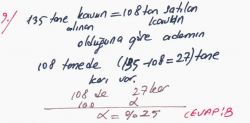 9.) 135 tane kavun = 108 tane satılan
alınan kavun
olduğuna göre adamın
108 tanede (135-108=27) tane
karı var.
108 de 27 kar
100 α
α = %25
CEVAP: B